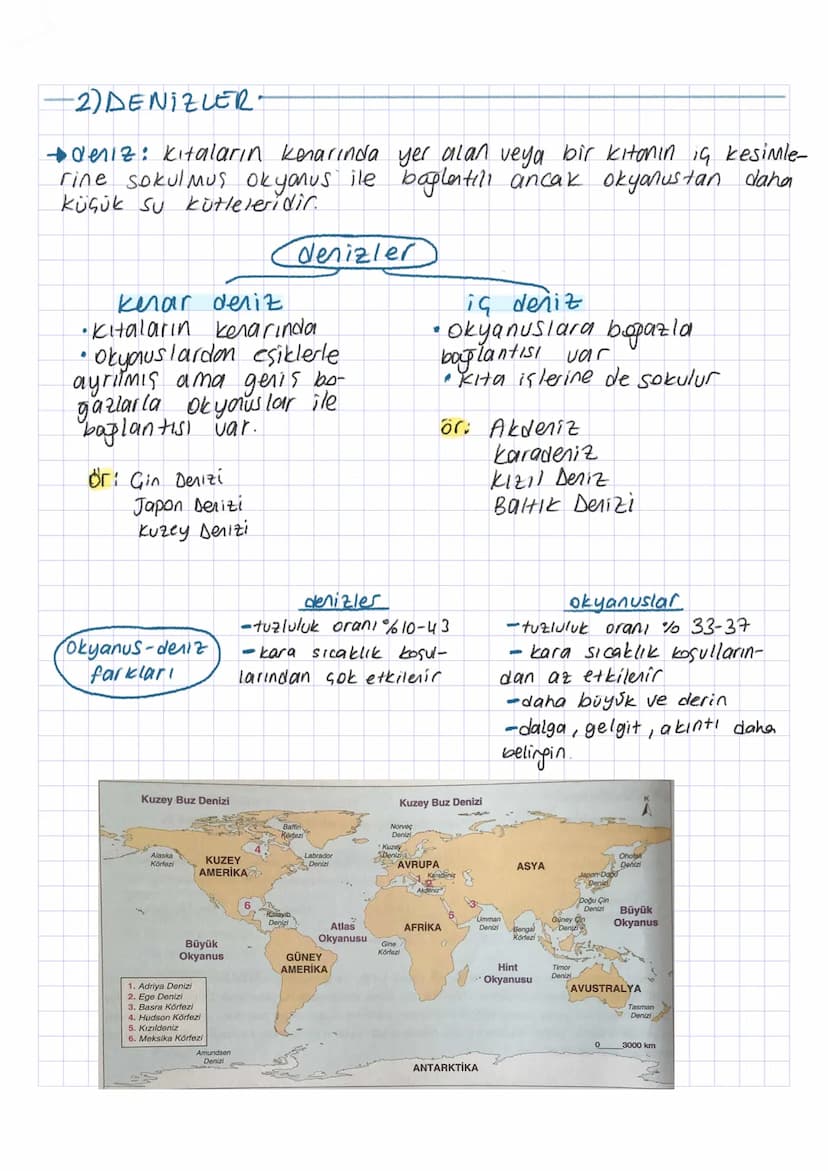 2) DENİZLER
→ deniz: kıtaların kenarında yer alan veya bir kıtanın iç kesimle-
rine sokulmuş okyanus ile bağlantılı ancak okyanustan daha
küçük su kütleleridir.
denizler
kenar deniz
• kıtaların kenarında
• okyanuslardan eşiklerle
ayrılmış ama geniş bo-
ğazlarla okyanuslar ile
bağlantısı var.
ör: Çin Denizi
Japon Denizi
Kuzey Denizi
iç deniz
• okyanuslara boğazla
bağlantısı var
• kıta içlerine de sokulur
ör: Akdeniz
Karadeniz
Kızıl Deniz
Baltık Denizi
Okyanus-deniz
farkları
denizler
- tuzluluk oranı %10-43
- kara sıcaklık koşul-
larından çok etkilenir
okyanuslar
- tuzluluk oranı % 33-37
- kara sıcaklık koşulların-
dan az etkilenir
- daha büyük ve derin
- dalga, gelgit, akıntı daha
belirgin.
Kuzey Buz Denizi
Kuzey Buz Denizi
K
Baffin
Körfezi
Norveç
Denizi
4
Alaska
Körfezi
KUZEY
AMERİKA
Labrador
Denizi
Kuzey
Denizi
AVRUPA
ASYA
Ohotsk
Denizi
1
2
Karadeniz
Akdeniz
Japon-Doğu
Denizi
6
Karayib
Denizi
5
3
Doğu Çin
Denizi
Büyük
Okyanus
Atlas
Okyanusu
AFRİKA
Umman
Denizi
Bengal
Körfezi
Güney Çin
Denizi
Büyük
Okyanus
GÜNEY
AMERİKA
Gine
Körfezi
Hint
Okyanusu
Timor
Denizi
AVUSTRALYA
1. Adriya Denizi
2. Ege Denizi
3. Basra Körfezi
4. Hudson Körfezi
5. Kızıldeniz
6. Meksika Körfezi
Tasman
Denizi
Amundsen
Denizi
0 3000 km
ANTARKTİKA